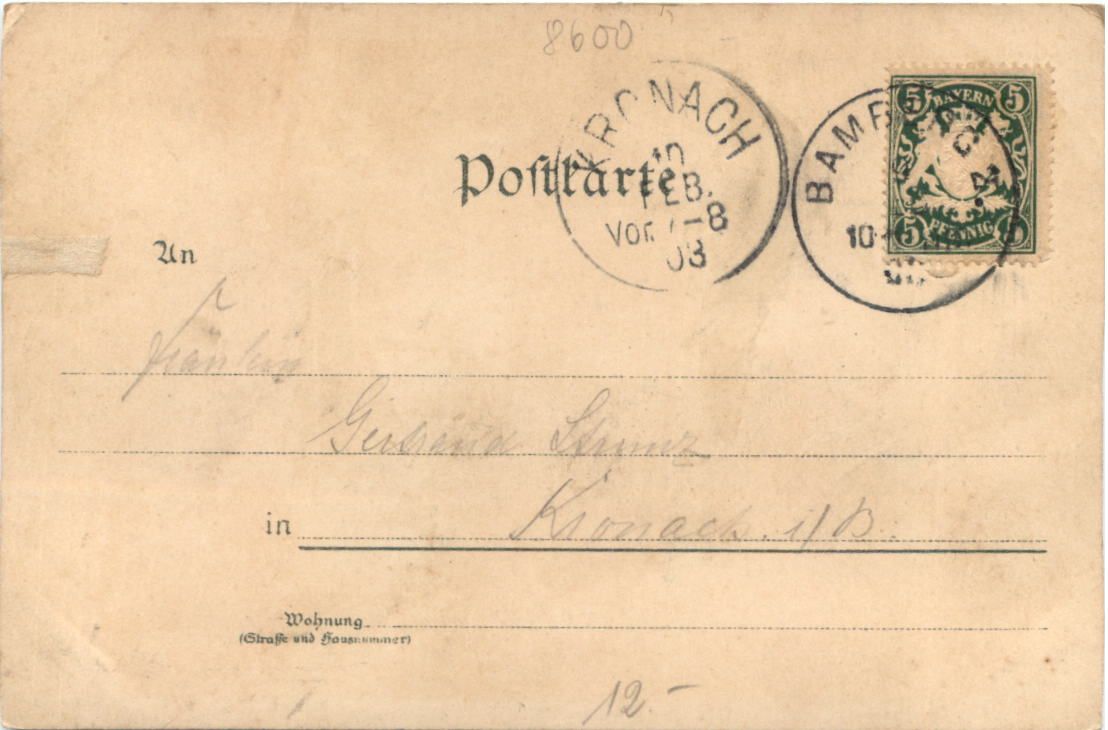 8600
KRONACH
10
FEB.
Vor. 7-8
03
BAMBERG 2.
10
5 BAYERN 5
5 PFENNIG 5
Postkarte
An
Fräulein
Gertraud Strunz
in Kronach i/B.
Wohnung
(Straße und Hausnummer)
12.-